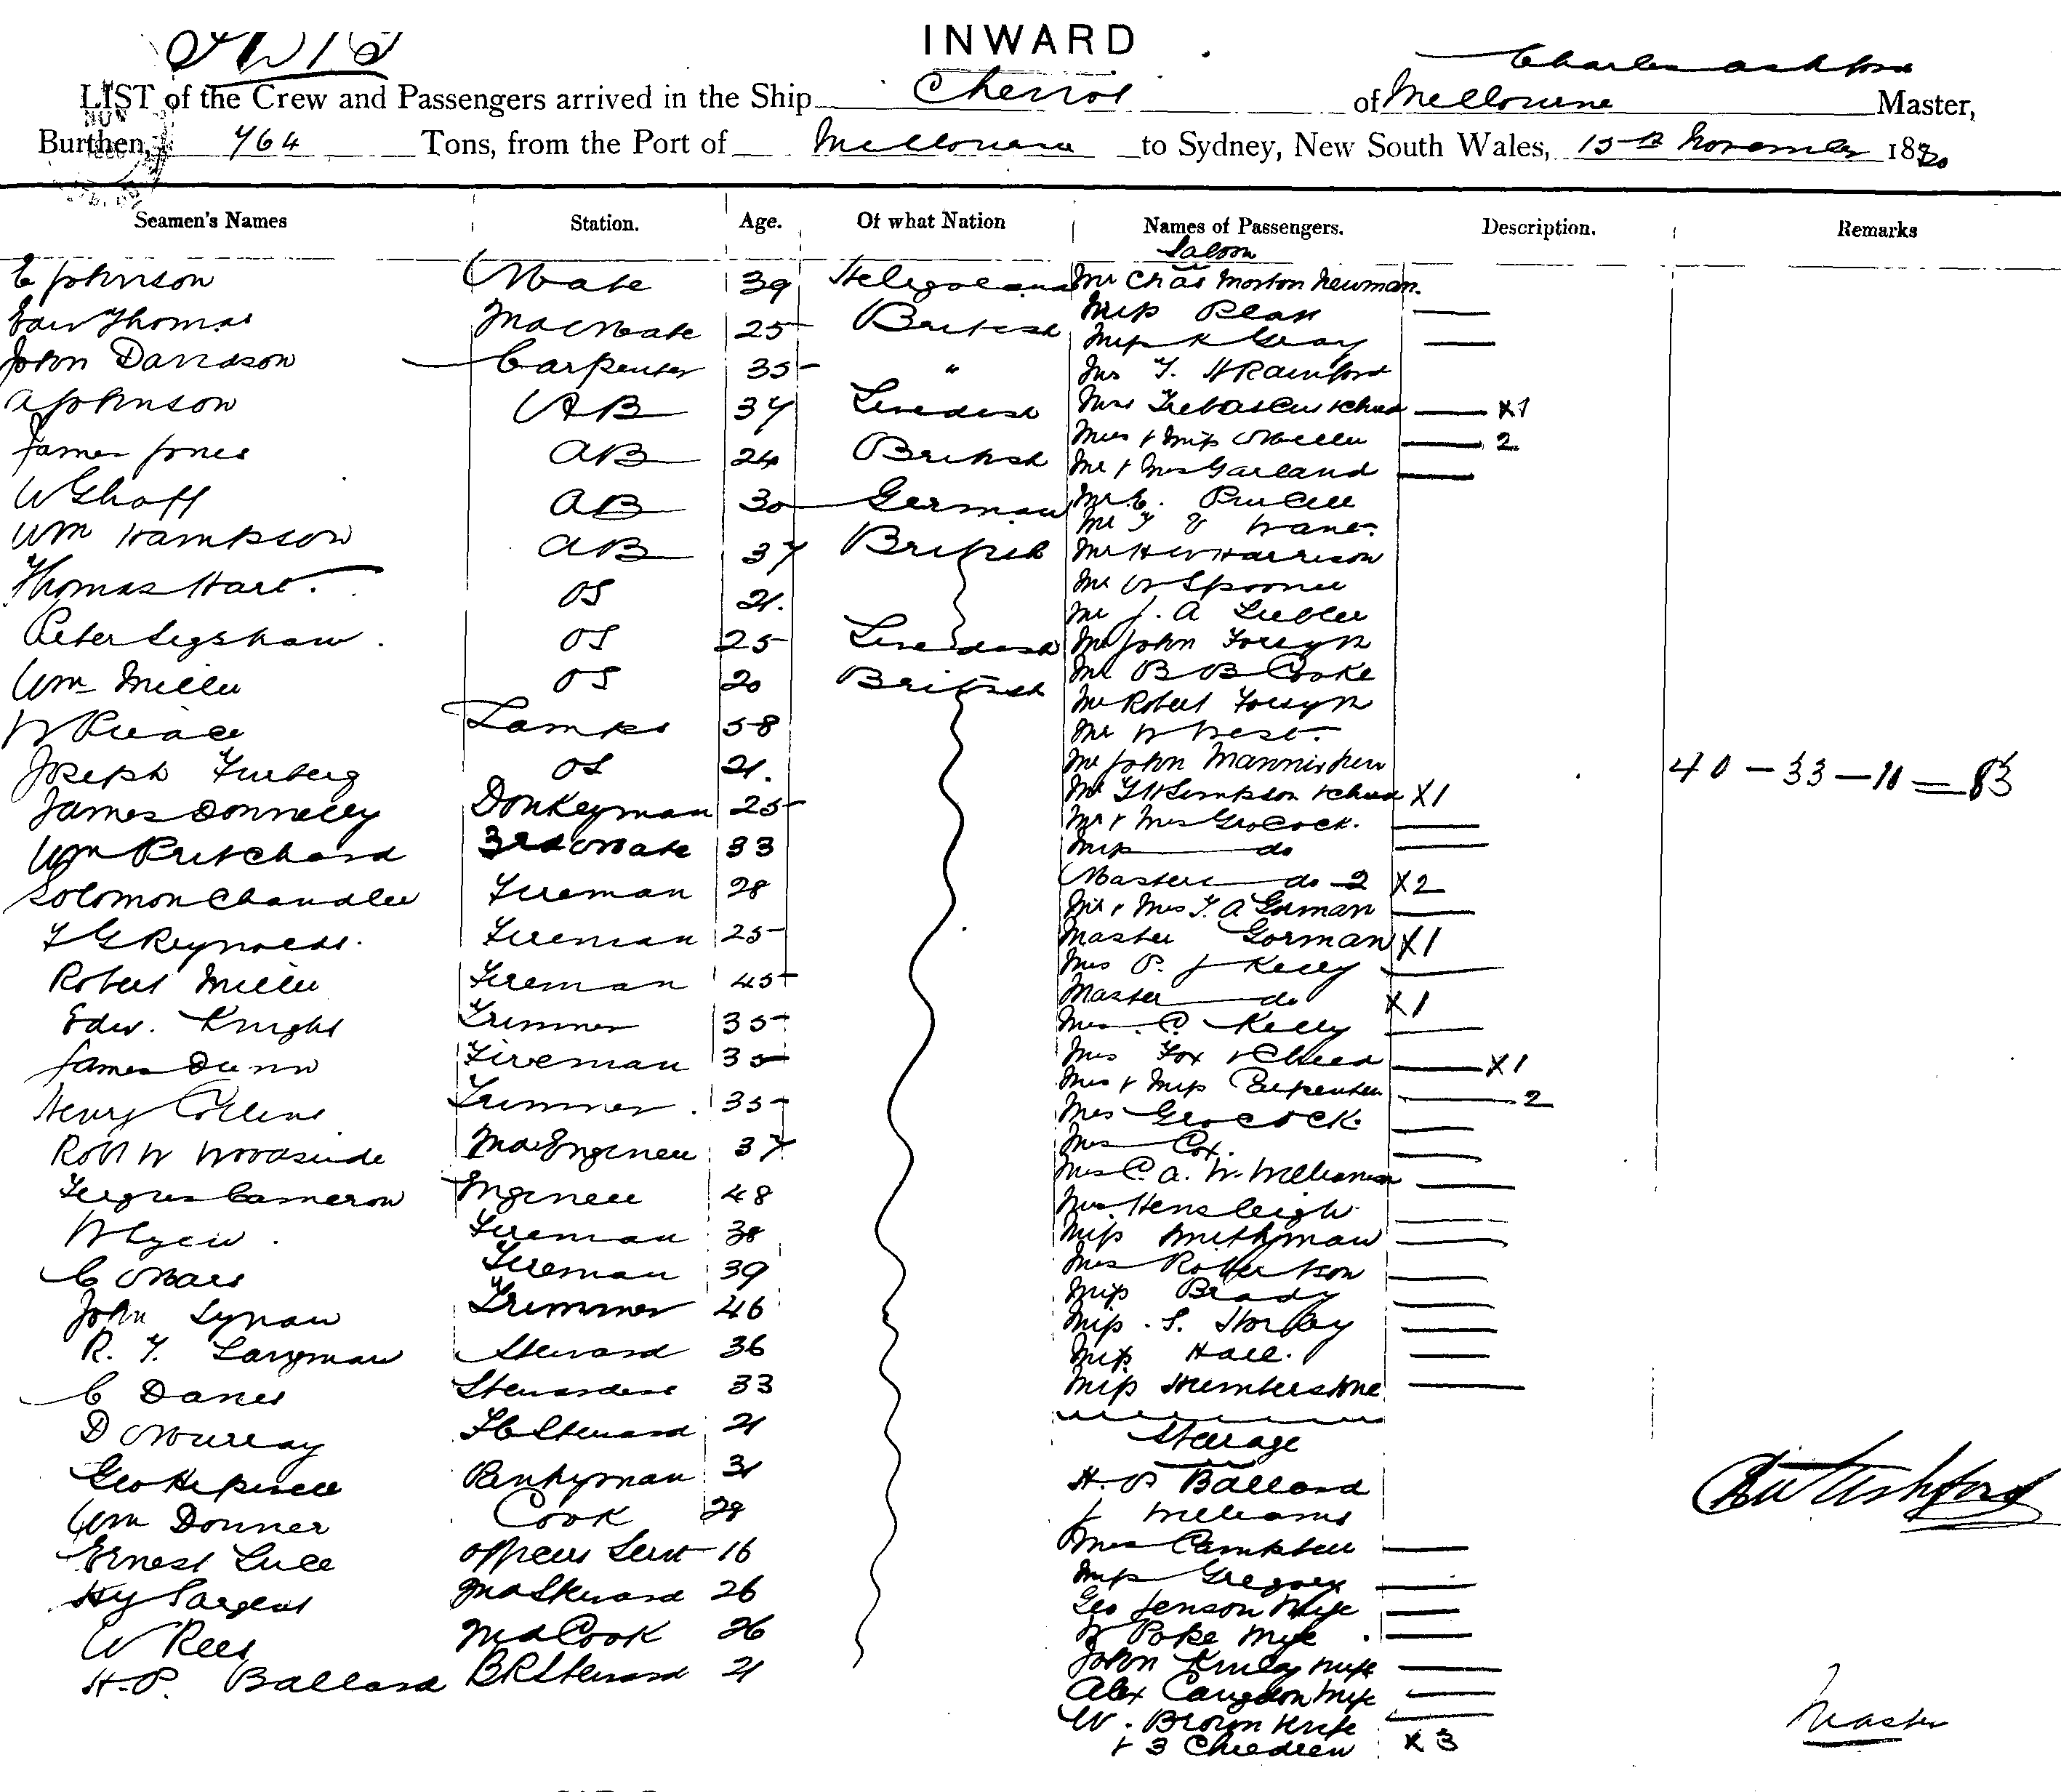 INWARD
Charles Ashford
LIST of the Crew and Passengers arrived in the Ship Cheviot of Melbourne Master,
Burthen, 764 Tons, from the Port of Melbourne to Sydney, New South Wales, 15th November 1880
Seamen's Names Station. Age. Of what Nation Names of Passengers. Description. Remarks
Saloon
C Johnson Mate 39 Mr Chas Morton Newman.
Edw Thomas 2nd Mate 25 British Miss
John Davidson Carpenter 35 " Miss K Gray
Mr T. H Rainford
A Johnson AB 37 Swedish Mrs & child X1
James Jones AB 24 British Mrs & Miss Miller 2
Mr & Mrs Garland
AB 30 German Mr E. Purcell
Mr T V
Wm Hampson AB 37 British Mr H W Harrison
Thomas Hart. OS 21. Mr W Spooner
Mr J. A
Peter OS 25 Swedish Mr John Forsyth
Wm Miller OS 20 British Mr B B Cooke
Mr Robert Forsyth
W Lamps 58 Mr W West.
Joseph OS 21. Mr John
40 - 33 - 10 = 83
James Donnelly Donkeyman 25 Mr Simpson & child X1
Mr & Mrs Grocock.
Wm Pritchard 3rd Mate 33 Miss do
Solomon Chandler Fireman 28 Masters do 2 X2
Mr & Mrs T. A Gorman
T G Reynolds. Fireman 25 Master Gorman X1
Mrs P. J Kelly
Robert Miller Fireman 45 Master do X1
Edw. Knight Trimmer 35 Mrs C Kelly
James Dunn Fireman 35 Mrs Fox & Child X1
Mrs & Miss Carpenter 2
Henry Collins Trimmer. 35 Mrs Grocock.
Robt W Woodside 2nd Engineer 37 Mrs Cox.
Mrs C. A. W. Williamson
Fergus Cameron Engineer 48 Mrs Hensleigh
W Fireman 38 Miss Smithyman
C Fireman 39 Mrs Robertson
Miss Brady
John Trimmer 46 Miss S.
R. T. Langman Steward 36 Miss Hall.
C Stewardess 33 Miss Humberstone
D Murray FC Steward 21 Steerage
Geo Pantryman 31 H. P Ballard
Wm Donner Cook 28 J Williams
Ernest Luce officers Servt 16 Mrs Campbell
Miss Gregory
Hy Sargent 2nd Steward 26 Geo Jenson Wife
W Rees 2nd Cook 26 W Poke Wife
H. P. Ballard BR Steward 21 John Wife
Alex Wife
W. Brown Wife
& 3 Children X 3
Ch Ashford
Master